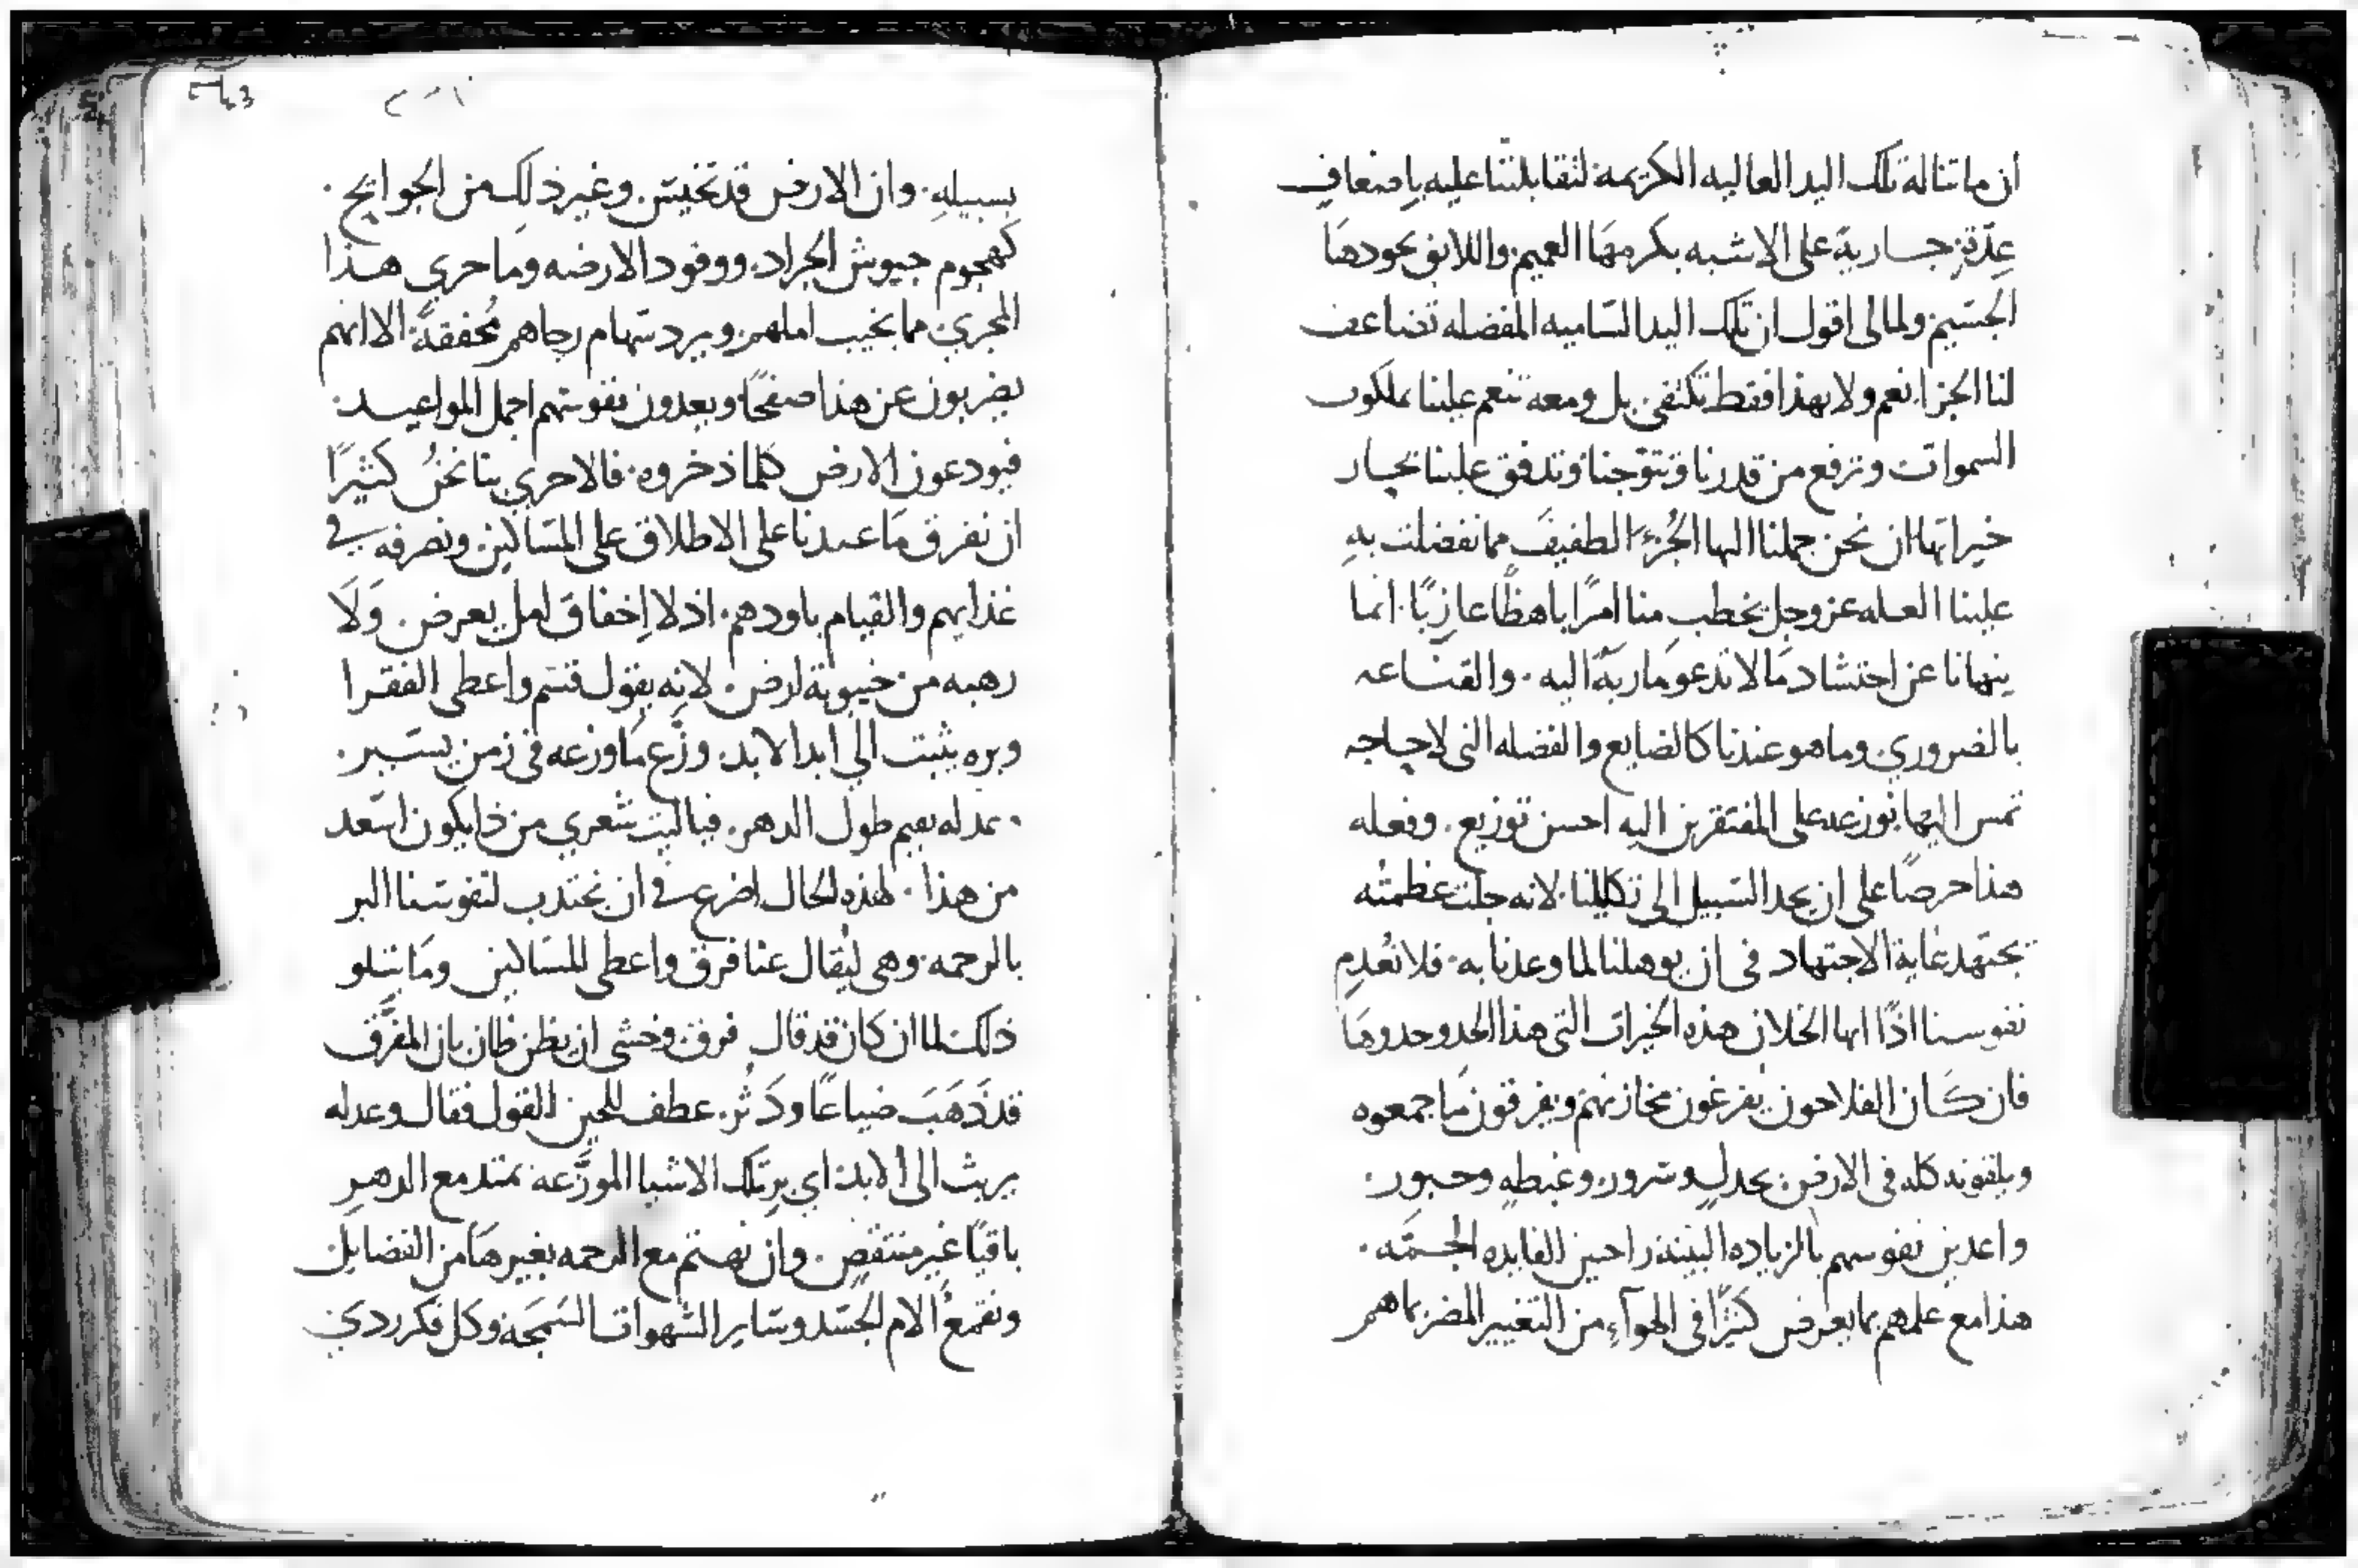 ان ما تناله تلك اليد العاليه الكريمة لتقابلنا عليه باضعافٍ
عدّةٍ جاريةً على الاشبه بكرمهَا العميم واللايق بجودهَا
الجسَيم ولمالى اقول ان تلك اليد السَاميه المفضله تضاعف
لنا الجزا نعم ولا بهذا فقط تكتفي بل ومعه تنعم علينا بملكوت
السموات وترفع من قدرنا وتتوّجنا وتدفق علينا بحار
خيراتها ان نحن حملنا اليها الجُزءَ الطفيفَ مما تفضلت بهِ
علينا العله عز وجل يخطب منا امرًا باهظًا عازبًا انما
ينهانا عن احتشاد مَا لا تدعو مَاربَهُ اليه · والقناعه
بالضروري وما هو عندنا كالضايع والفضله التى لا حاجه
تمس اليها نوزعه على المفتقرين اليه احسن توزيع . وفعله
هذا حرصًا على ان يجد السَبيل الى تكليلنا لانه جلت عظمتُه
يجتهد غاية الاجتهاد فى ان يوهلنا لما وعدنا به· فلا نُعدِم
نفوسنا اذًا ايها الخلان هذه الخيرات التى هذا الحد وحدوهَا
فان كَان الفلاحون يفرغون مخازنهم ويفرقون مَا جمعوه
ويلقونه كله فى الارض بجدلٍ وسَرور وغبطهٍ وحبور·
واعدين نفوسهم بالزياده البينة راحين الفايده الجسمَه ·
هذا مع علمهم بما يعرض كثيرًا فى الهوآءِ من التغيير المضر بما هم
بسبيلهِ · وان الارض قد تخيسَ وغير ذلك من الجوايح ·
كهجوم جيوش الجراد ووفود الارضه ومَا جري هذا
المجري مما يخيب املهم ويرد سَهام رجاهم مُخفقةً الا انهم
يضربون عن هذا صفحًا ويعدون نفوسَهم اجمل المواعيد·
فيودعون الارض كلما ذخروه · فالاحري بنا نحنُ كثيرًا
ان نفرق مَا عندنا على الاطلاق على المسَاكين ونصرفه في
غذايهم والقيام باودهم · اذ لا اِخفاق امل يعرض · وَلَا
رهبه من خيبوبة ارض · لانه يقول قسَم واعطى الفقرا
وبره يثبت الي ابد الابد · وزَّع مَا وزعه فى زمن يسَير ·
· عدله يقيم طول الدهر · فيا ليت شعري من ذا يكون اسَعد
من هذا · لهذه الحال اضرع في ان نجتدب لنفوسَنا البر
بالرحمه · وهى ليُقال عنا فرق واعطى للمسَاكين ومَا يتلو
ذلك لما ان كان قد قال فرق وخشى ان يظن ظان بان المفرَّق
قد ذَهَبَ ضياعًا ودَثُر · عطف للحين القول فقال وعدله
يريث الى الابد اي بر تلك الاشيا الموزَّعه يمتد مع الدهرِ
باقيًا غير منتقصٍ · وان نهتم مع الرحمه بغيرهَا من الفضايل
ونقمعُ الام الجسَد وسَاير الشهوات السَمجَه وكل فكر ردي